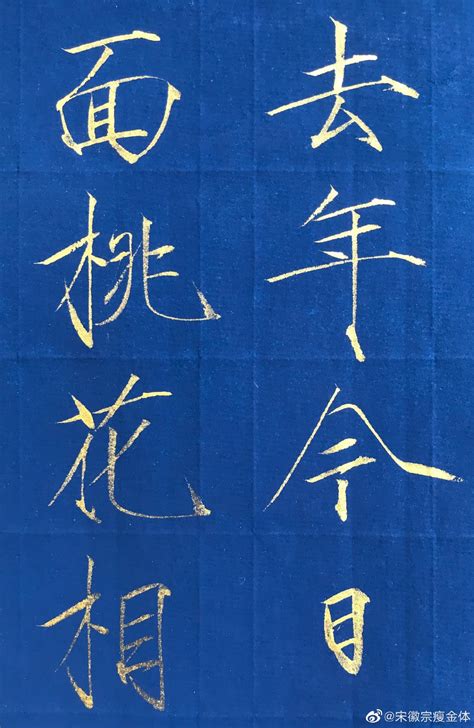 去年今日
面桃花相
@宋徽宗瘦金体